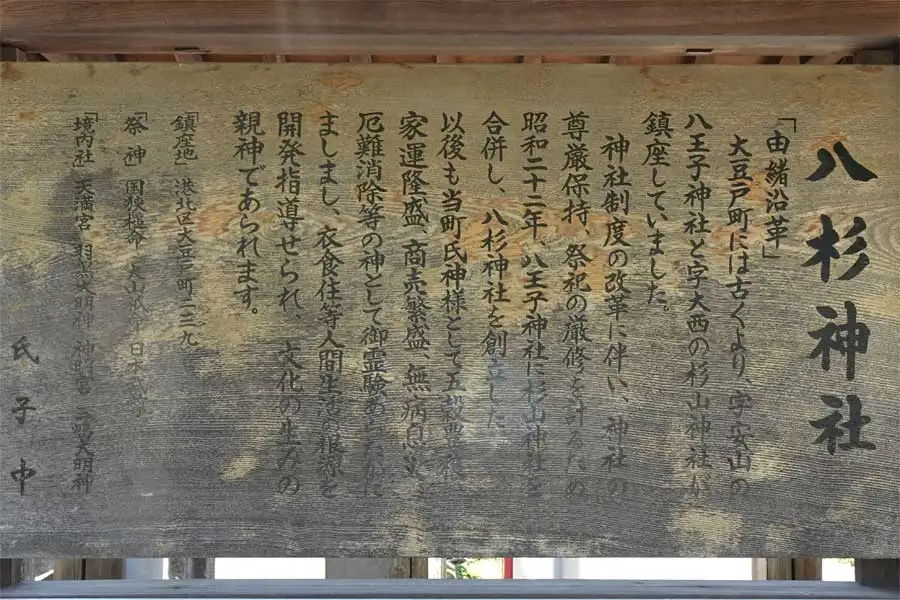 八杉神社
「由緒沿革」
大豆戸町には古くより、字安山の
八王子神社と字大西の杉山神社が
鎮座していました。
神社制度の改革に伴い、神社の
尊厳保持、祭祀の厳修を計るため
昭和二十二年、八王子神社に杉山神社を
合併し、八杉神社を創立した
以後も当町氏神様として五穀豊穣
家運隆盛、商売繁盛、無病息災
厄難消除等の神として御霊験あらたかに
ましまし、衣食住等人間生活の根源を
開発指導せられ、文化の生みの
親神であられます。
「鎮座地」港北区大豆戸町二三九
「祭神」国狭槌命 大山 日本武尊
「境内社」天満宮 大明神 神明宮 大明神
氏子中